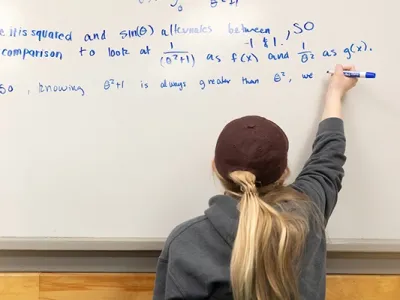 it is squared and sin(θ) alternates between -1 & 1. , so
comparison to look at 1/(θ²+1) as f(x) and 1/θ² as g(x).
so , knowing θ²+1 is always greater than θ², we